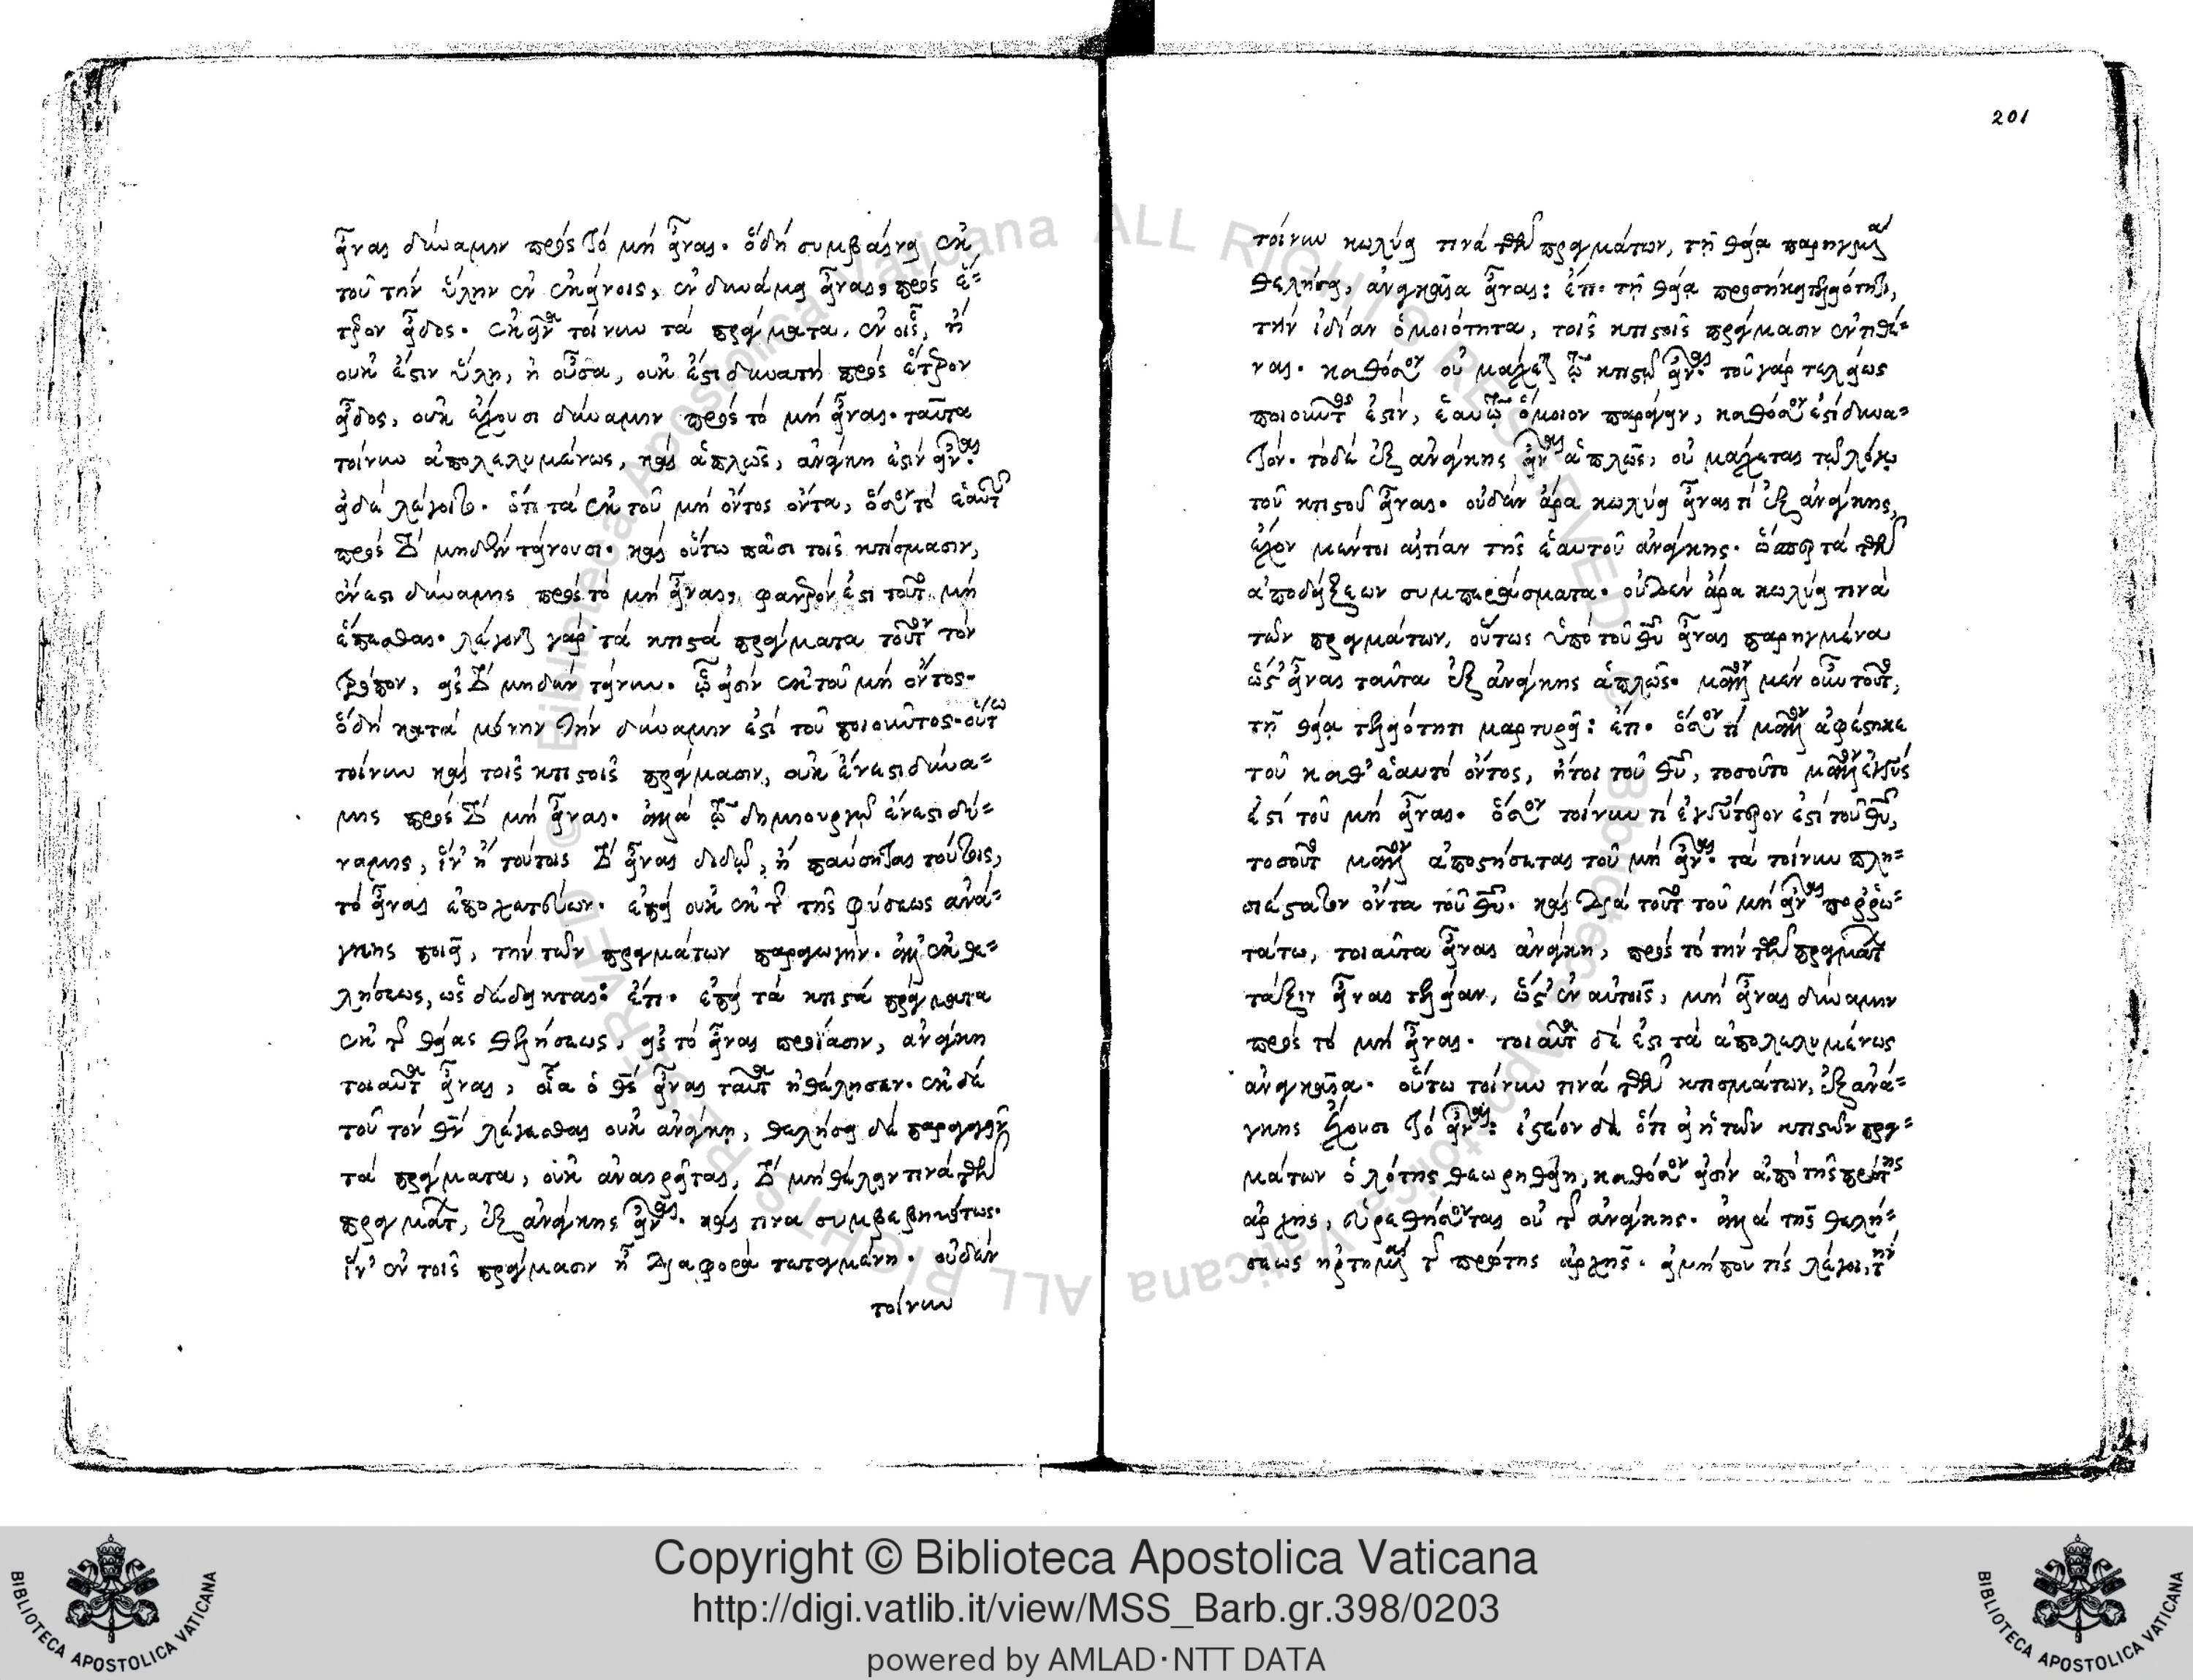 εἶναι δύναμιν πρὸς τὸ μὴ εἶναι. ὃ δὴ συμβαίνει ἐκ
τοῦ τὴν ὕλην ἐν ἐκείνοις, ἐν δυνάμει εἶναι, πρὸς ἕ=
τερον εἶδος. ἐκεῖνα τοίνυν τὰ πράγματα. ἐν οἷς, ἢ
οὐκ ἔστιν ὕλη, ἢ οὖσα, οὐκ ἔστι δυνατὴ πρὸς ἕτερον
εἶδος, οὐκ ἔχουσι δύναμιν πρὸς τὸ μὴ εἶναι. ταῦτα
τοίνυν ἀπολελυμένως, καὶ ἁπλῶς, ἀνάγκη ἐστὶν εἶναι.
εἰ δὲ λέγοιτο. ὅτι τὰ ἐκ τοῦ μὴ ὄντος ὄντα, ὅσον τὸ ἑαυτ
πρὸς τὸ μηδὲν τείνουσι. καὶ οὕτω πᾶσι τοῖς κτίσμασιν,
ἔνεστι δύναμις πρὸς τὸ μὴ εἶναι, φανερόν ἐστι τοῦτο μὴ
ἕπεσθαι. λέγεται γὰρ τὰ κτιστὰ πράγματα τοῦτον τὸν
τρόπον, εἰς τὸ μηδὲν τείνειν. ᾧ εἰσὶν ἐκ τοῦ μὴ ὄντος.
ὃ δὴ κατὰ μόνην τὴν δύναμιν ἐστὶ τοῦ ποιοῦντος. οὕτω
τοίνυν καὶ τοῖς κτιστοῖς πράγμασιν, οὐκ ἔνεστι δύνα=
μις πρὸς τὸ μὴ εἶναι. ἀλλὰ τῷ δημιουργῷ ἔνεστι δύ=
ναμις, ἵν' ἢ τούτοις τὸ εἶναι διδῷ, ἢ παύσηται τούτοις,
τὸ εἶναι ἐποχετεύων. ἐπεὶ οὐκ ἐκ τῆς φύσεως ἀνά=
γκης ποιεῖ, τὴν τῶν πραγμάτων παραγωγήν. ἀλλ' ἐκ θε=
λήσεως, ὡς δέδεικται: ἔτι. ἐπεὶ τὰ κτιστὰ πράγματα
ἐκ τῆς θείας θελήσεως, εἰς τὸ εἶναι προΐασιν, ἀνάγκη
τοιαῦτα εἶναι, οἷα ὁ θς εἶναι ταῦτα ἠθέλησεν. ἐκ δὲ
τοῦ τὸν θν λέγεσθαι οὐκ ἀνάγκῃ, θελήσει δὲ παραγαγεῖν
τὰ πράγματα, οὐκ ἀναιρεῖται, τὸ μὴ θέλειν τινὰ τῶν
πραγμάτ, ἐξ ἀνάγκης εἶναι. καί τινα συμβεβηκότως.
ἵν' ἐν τοῖς πράγμασιν ᾖ διαφορὰ τεταγμένη. οὐδὲν
τοίνυν
201
τοίνυν κωλύει τινὰ τῶν πραγμάτων, τῇ θείᾳ παρηγμένα
θελήσει, ἀναγκαῖα εἶναι: ἔτι. τῇ θείᾳ προσήκει τελειότητι,
τὴν ἰδίαν ὁμοιότητα, τοῖς κτιστοῖς πράγμασιν ἐντιθέ=
ναι. καθόσον οὐ μάχεται τῷ κτιστῷ εἶναι. τοῦ γὰρ τελείως
ποιοῦντός ἐστιν, ἑαυτῷ ὅμοιον παράγειν, καθόσον ἐστὶ δυνα=
τόν. τὸ δὲ ἐξ ἀνάγκης εἶναι ἁπλῶς, οὐ μάχεται τῷ λόγῳ
τοῦ κτιστοῦ εἶναι. οὐδὲν ἄρα κωλύει εἶναι τί ἐξ ἀνάγκης,
ἔχον μέντοι αἰτίαν τῆς ἑαυτοῦ ἀνάγκης. ὥσπερ τὰ τῶν
ἀποδείξεων συμπεράσματα. οὐδὲν ἄρα κωλύει τινὰ
τῶν πραγμάτων, οὕτως ὑπὸ τοῦ θῦ εἶναι παρηγμένα
ὥστ' εἶναι ταῦτα ἐξ ἀνάγκης ἁπλῶς. μᾶλλον μὲν οὖν τοῦτο,
τῇ θείᾳ τελειότητι μαρτυρεῖ: ἔτι. ὅσον τί μᾶλλον ἀφέστηκε
τοῦ καθ' ἑαυτὸ ὄντος, ἤτοι τοῦ θῦ, τοσοῦτο μᾶλλον ἐγγύς
ἐστι τοῦ μὴ εἶναι. ὅσον τοίνυν τί ἐγγύτερον ἐστὶ τοῦ θῦ,
τοσοῦτο μᾶλλον ἀποστήσεται τοῦ μὴ εἶναι. τὰ τοίνυν πλη=
σιέστατον ὄντα τοῦ θῦ. καὶ διὰ τοῦτο τοῦ μὴ εἶναι πορρω=
τάτω, τοιαῦτα εἶναι ἀνάγκη, πρὸς τὸ τὴν τῶν πραγμάτ
τάξιν εἶναι τελείαν, ὥστ' ἐν αὐτοῖς, μὴ εἶναι δύναμιν
πρὸς τὸ μὴ εἶναι. τοιαῦτα δέ ἐστι τὰ ἀπολελυμένως
ἀναγκαῖα. οὕτω τοίνυν τινὰ τῶν κτισμάτων, ἐξ ἀνά=
γκης ἔχουσι τὸ εἶναι: ἰστέον δὲ ὅτι εἰ ἡ τῶν κτιστῶν πρα=
μάτων ὁλότης θεωρηθείη, καθόσον εἰσὶν ἀπὸ τῆς πρώτης
ἀρχῆς, εὑρεθήσονται οὐ τῆς ἀνάγκης. ἀλλὰ τῆς θελή=
σεως ἠρτημέναι τῆς πρώτης ἀρχῆς. εἰ μήπου τις λέγοι, τὴν
Copyright © Biblioteca Apostolica Vaticana
http://digi.vatlib.it/view/MSS_Barb.gr.398/0203
powered by AMLAD·NTT DATA
BIBLIOTECA APOSTOLICA VATICANA
BIBLIOTECA APOSTOLICA VATICANA
© Biblioteca Apostolica Vaticana ALL RIGHTS RESERVED